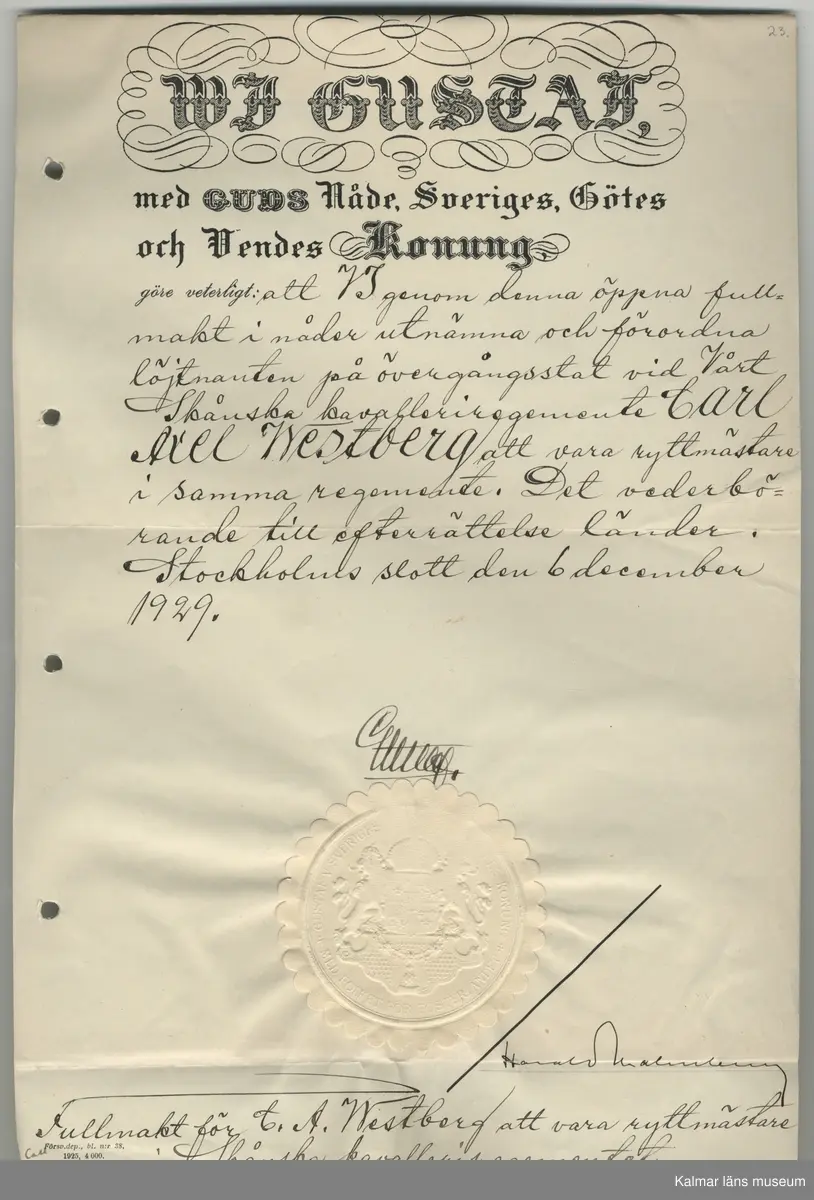 23.
WI GUSTAF,
med GUDS Nåde, Sveriges, Götes
och Vendes Konung,
göre veterligt: att VI genom denna öppna full=
makt i nåder utnämna och förordna
löjtnanten på övergångsstat vid Vårt
Skånska kavalleriregemente Carl
Axel Westberg att vara ryttmästare
i samma regemente. Det vederbö=
rande till efterrättelse länder.
Stockholms slott den 6 december
1929.
Harald Malmberg
Fullmakt för C. A. Westberg att vara ryttmästare
Försv.dep., bl. n:r 38.
1925, 4 000.
Carl
i Skånska kavalleriregementet.
Kalmar läns museum